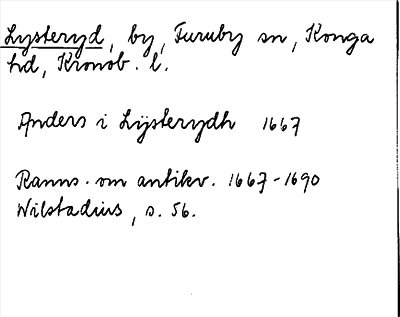 Lysteryd, by, Furuby sn, Konga
hd, Kronob. l.
Anders i Lÿsterydh 1667
Ranns. om antikv. 1667-1690
Wilstadius, s. 56.